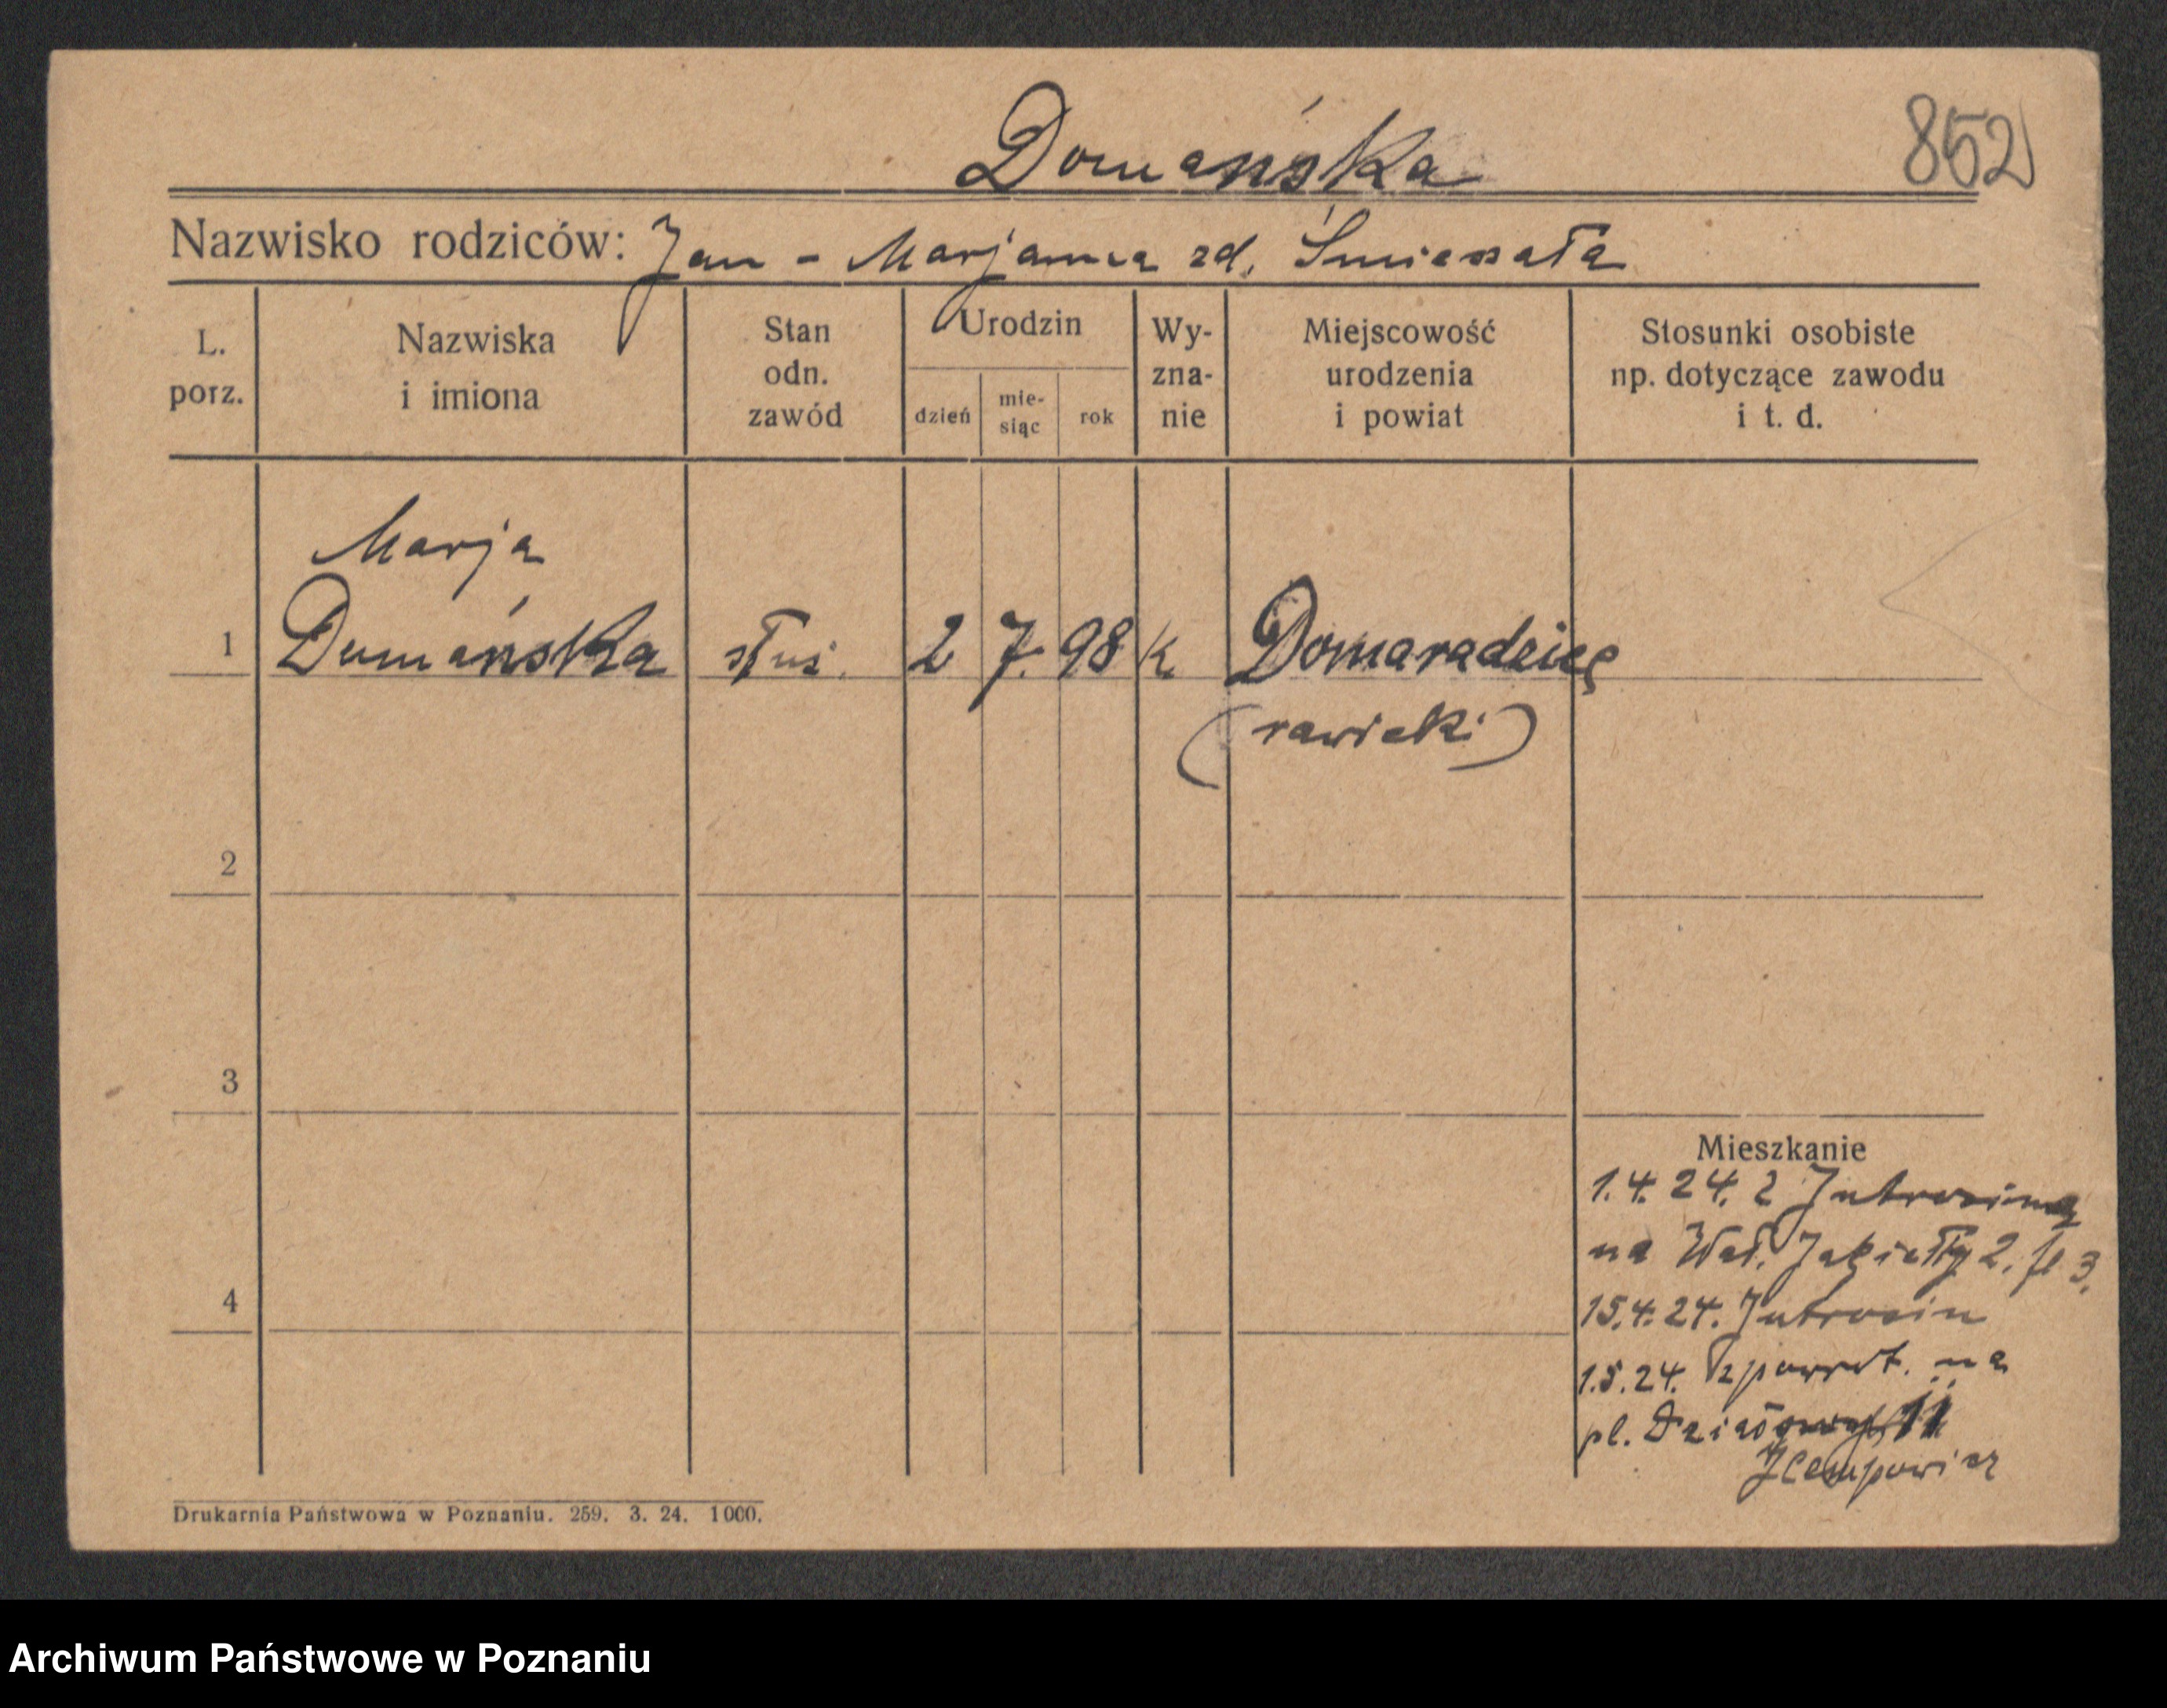 Domańska 852
Nazwisko rodziców: Jan - Marjanna zd. Śmieszała
L. porz.
Nazwiska i imiona
Stan odn. zawód
Urodzin
dzień
mie-siąc
rok
Wy-zna-nie
Miejscowość urodzenia i powiat
Stosunki osobiste np. dotyczące zawodu i t. d.
Marja
1 Domańska służ. 2 7. 98 k Domaradzice
(rawicki)
2
3
Mieszkanie
1.4.24. z Jutrosina
na Wał. Jagiełły 2. fl 3.
4
15.4.24. Jutrosin
1.5.24. zpowrot. na
pl. Działowy 11
Drukarnia Państwowa w Poznaniu. 259. 3. 24. 1000.
Archiwum Państwowe w Poznaniu